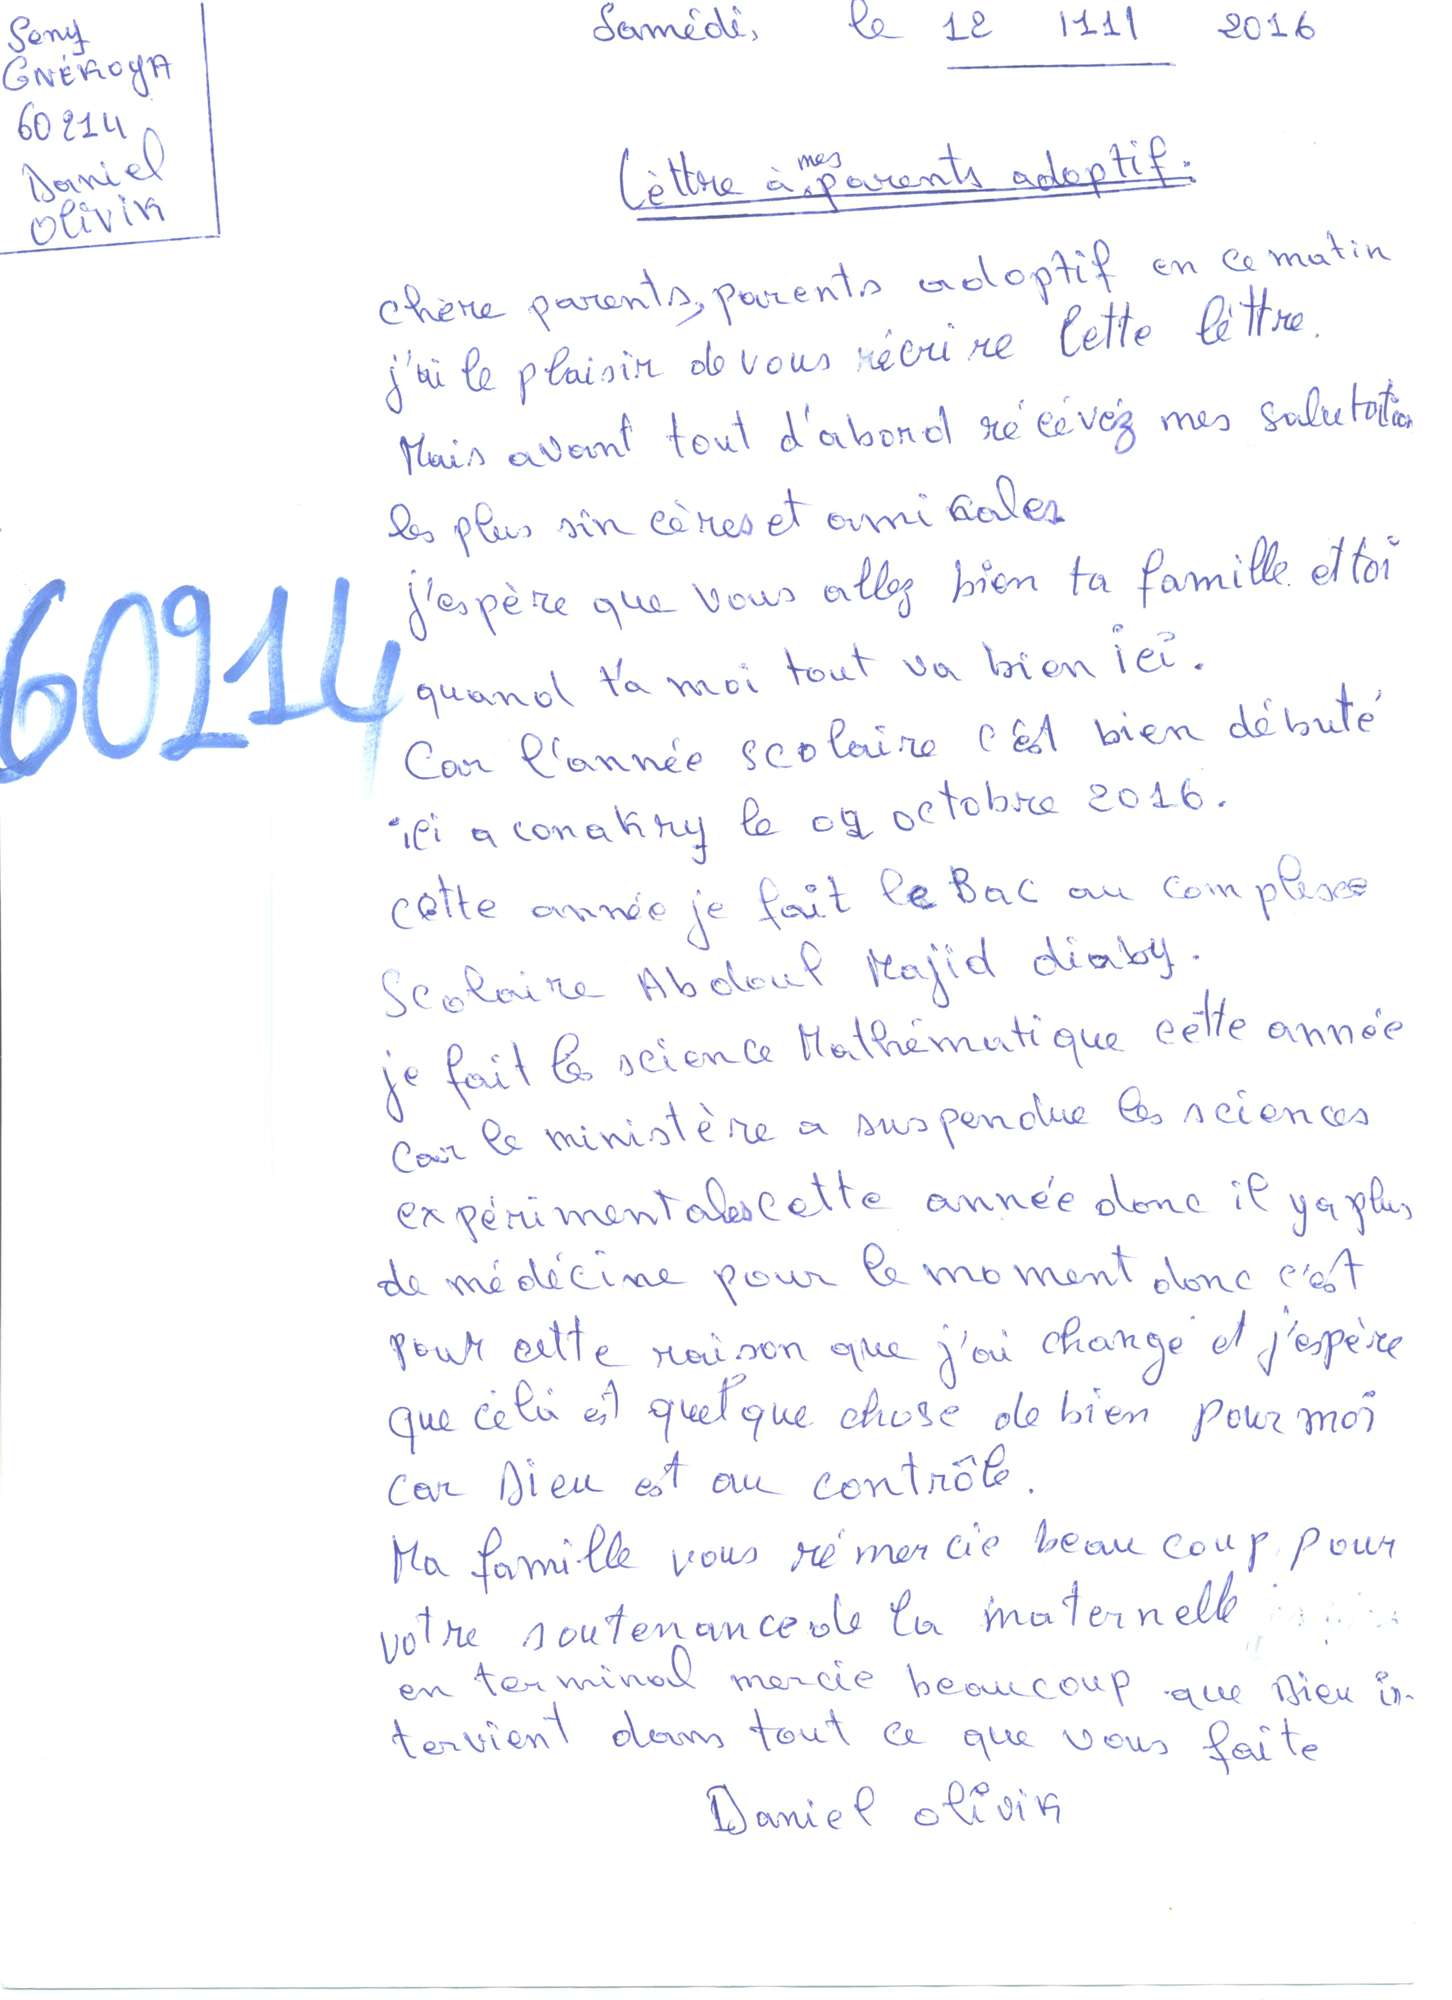 Seny
GNÉKOYA
60214
Daniel
Olivier
Samédi, le 12 /11/ 2016
Lèttre à mes parents adoptif.
chère parents, parents adoptif en ce matin
j'ai le plaisir de vous récrire cette lèttre.
Mais avant tout d'abord récévéz mes salutation
les plus sincères et amicales
j'espère que vous allez bien ta famille et toi
quand t'a moi tout va bien ici.
Car l'année scolaire c'est bien débuté
ici a conakry le 09 octobre 2016.
cette année je fait le Bac au complexe
Scolaire Abdoul Majid diaby.
je fait les science Mathématique cette année
car le ministère a suspendue les sciences
expérimentales cette année donc il ya plus
de médécine pour le moment donc c'est
pour cette raison que j'ai changé et j'espère
que célà est quelque chose de bien pour moi
car Dieu est au contrôle.
Ma famille vous rémercie beaucoup pour
votre soutenance de la maternelle
en terminal mercie beaucoup que Dieu in-
tervient dans tout ce que vous faite
Daniel olivier
60214